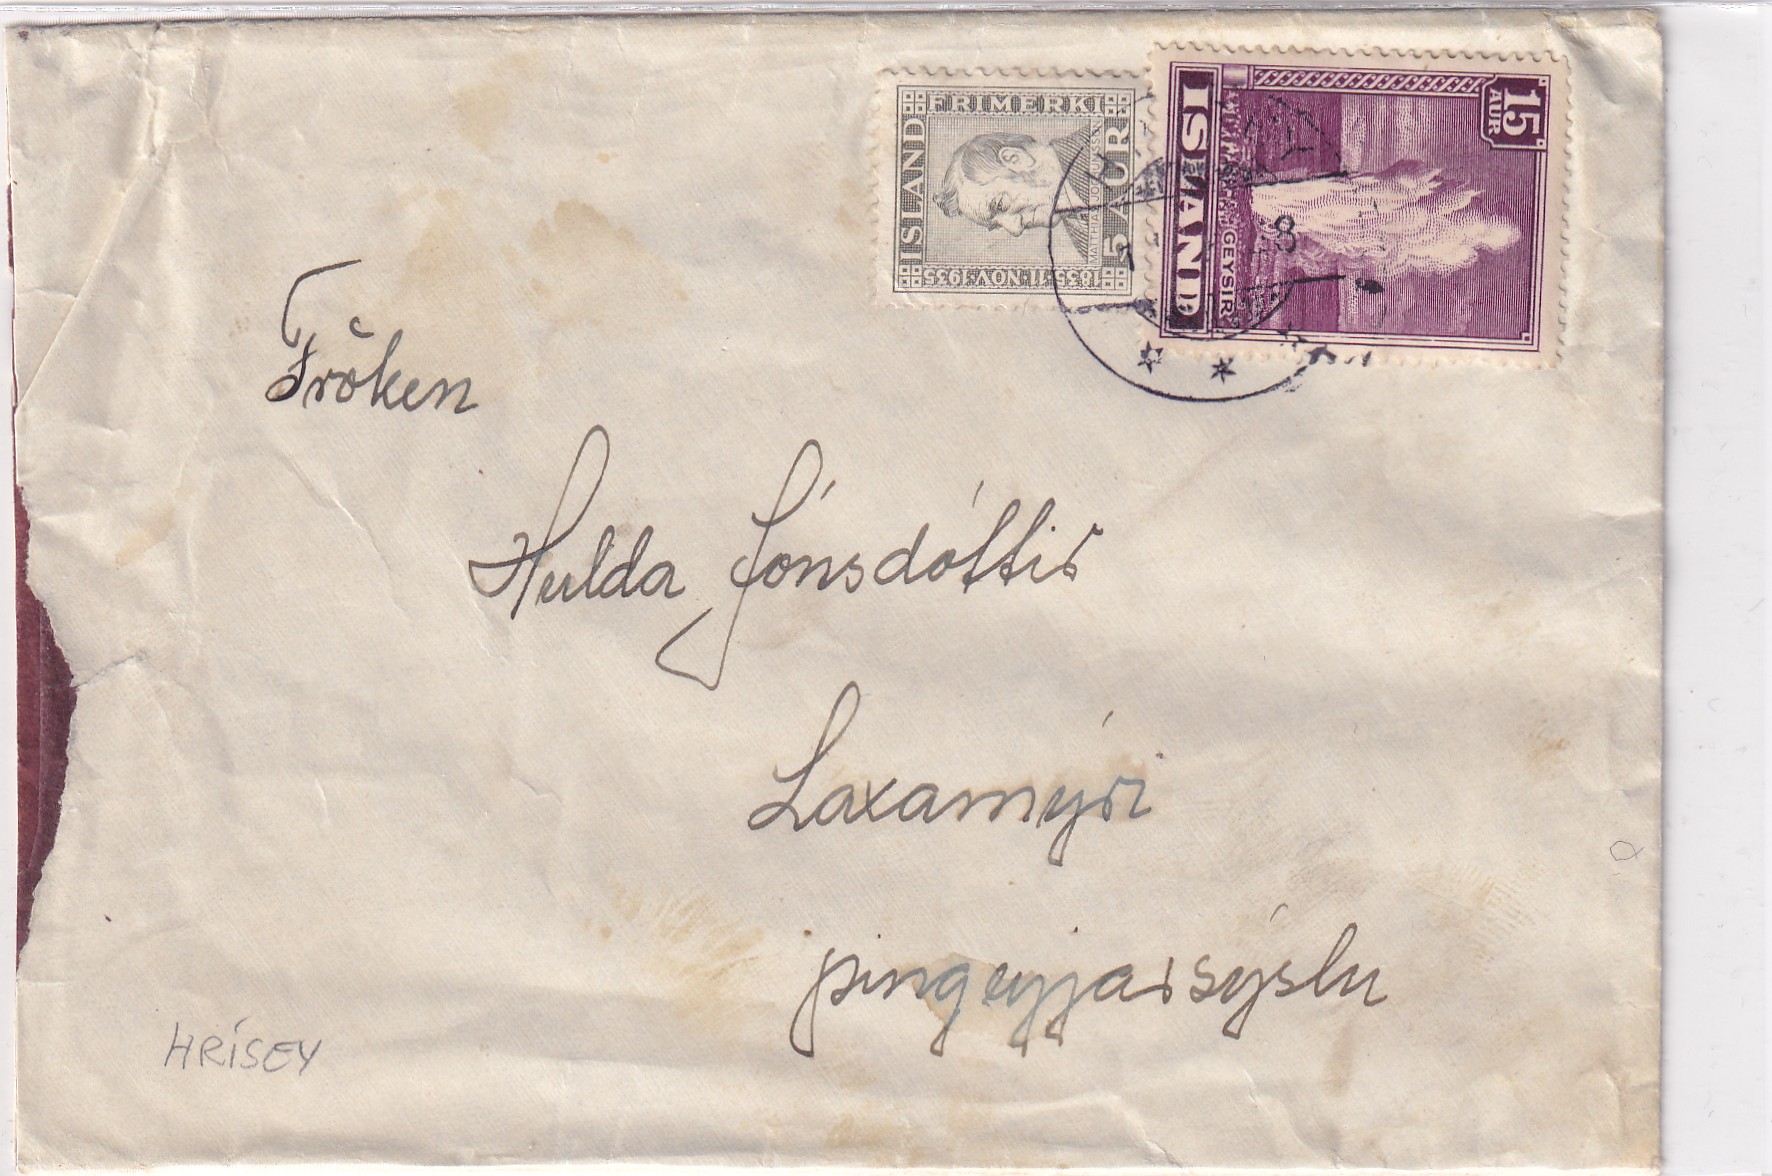 FRIMERKI
ISLAND
5 AUR
MATTHIAS JOCHUMSSON
1835·11·NOV·1935
15
AUR
ISLAND
GEYSIR
8
Frōken
Hulda Jónsdóttir
Laxamýri
þingeyjarsýslu
HRÍSEY